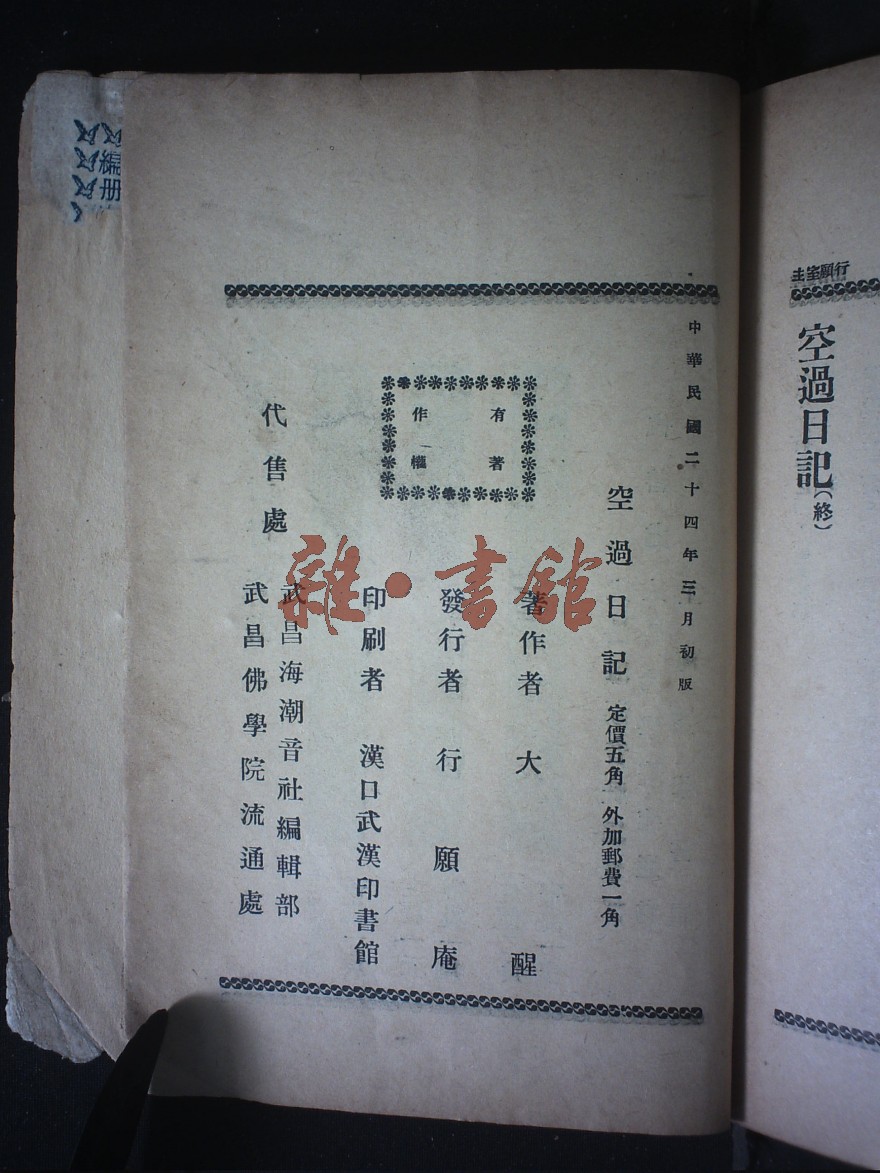 行願室主
空過日記(終)
中華民國二十四年三月初版
空過日記 定價五角 外加郵費一角
著作者 大醒
發行者 行願庵
印刷者 漢口武漢印書館
有著
作權
代售處
武昌海潮音社編輯部
武昌佛學院流通處
雜·書館
編
册